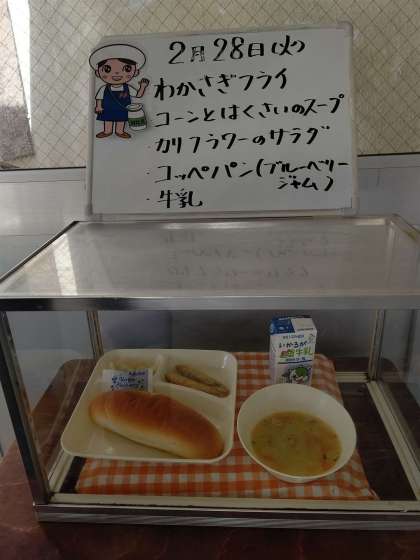 2月28日(火)
・わかさぎフライ
・コーンとはくさいのスープ
・カリフラワーのサラダ
・コッペパン(ブルーベリー
ジャム)
・牛乳
いかるが
牛乳